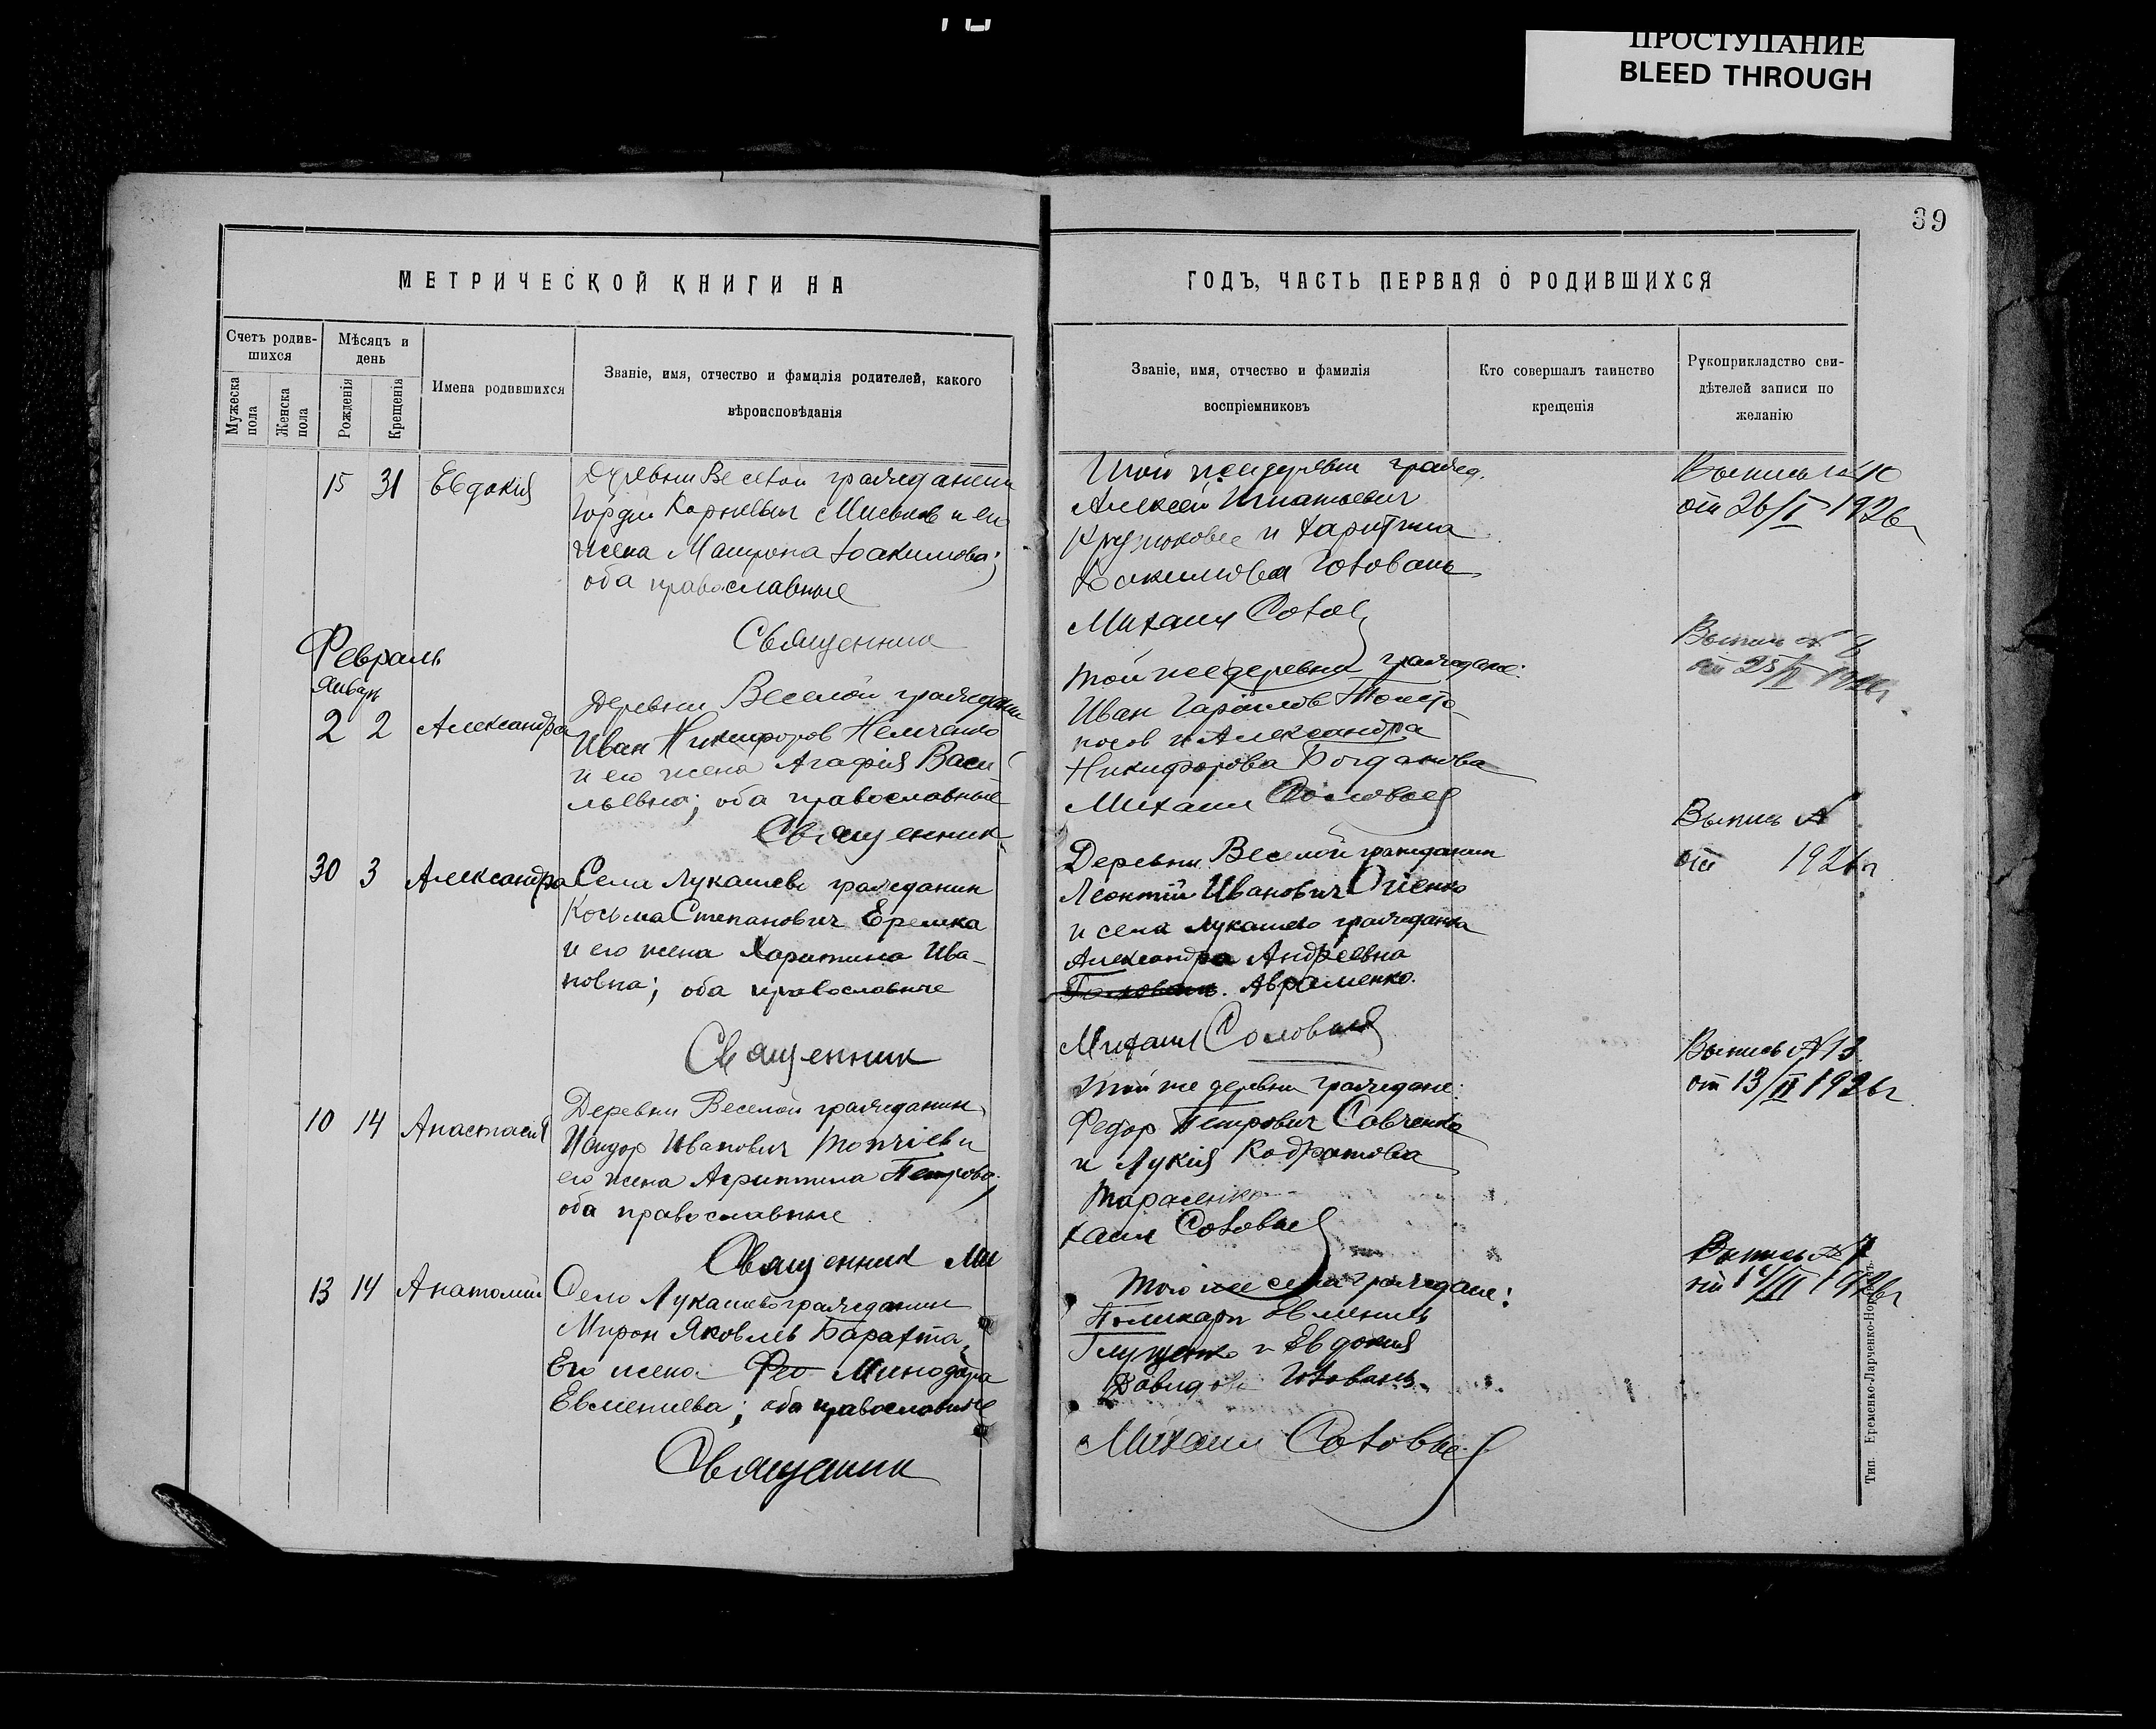 ПРОСТУПАНИЕ
BLEED THROUGH
39
МЕТРИЧЕСКОЙ КНИГИ НА
ГОДЪ, ЧАСТЬ ПЕРВАЯ О РОДИВШИХСЯ
Счетъ родив-
шихся
Мужеска
пола
Женска
пола
Мѣсяцъ и
день
Рожденія
Крещенія
Имена родившихся
Званіе, имя, отчество и фамилія родителей, какого
вѣроисповѣданія
Званіе, имя, отчество и фамилія
воспріемниковъ
Кто совершалъ таинство
крещенія
Рукоприкладство сви-
дѣтелей записи по
желанію
15 31 Евдокія
Деревни Веселой гражданин
Гордій Корнеевич и его
жена Матрона Іоакимова;
оба православные
Священник
Той же деревни гражд.
Алексей Игнатьевич
и Харитина
Іоакимова Головань
Михаил Солов
Выпись № 10
от 26/I 1926 г
Февраль
Январь
2 2 Александра
Деревни Веселой гражданин
Иван Никифоров Немченко
и его жена Агафія Васи-
льевна; оба православные
Священник
Той же деревни граждане:
Иван Толсто-
носов и Александра
Никифорова Богданова
Михаил Соловьев
Выпись № 8
от 25/II 1926 г
30 3 Александра
Села Лукашево гражданин
Косьма Степанович Еремка
и его жена Харитина Ива-
новна; оба православные
Священник
Деревни Веселой гражданин
Леонтій Иванович Огіенко
и села Лукашево гражданка
Александра Андреевна
Головань. Авраменко.
Михаил Соловьев
Выпись №
от 1926 г
10 14 Анастасія
Деревни Веселой гражданин
Исидор Иванович Топчіев и
его жена Агриппина Петрова;
оба православные
Священник Ми
Той же деревни граждане:
Федор Петрович Савченко
и Лукія Кодратова
Тарасенко
хаил Соловьев
Выпись № 13
от 13/II 1926 г
13 14 Анатолий
Село Лукашево гражданин
Мирон Яковлев Барахта,
Его жена Фео Минодора
Евменіева; оба православные
Священник
Того же села граждане:
Поликарп Евмениев
Глущенко и Евдокия
Давидова Головань
Михаил Соловьев
Выпись № 7
от 14/II 1926 г
Тип. Еременко-Ларченко-Норовитъ.